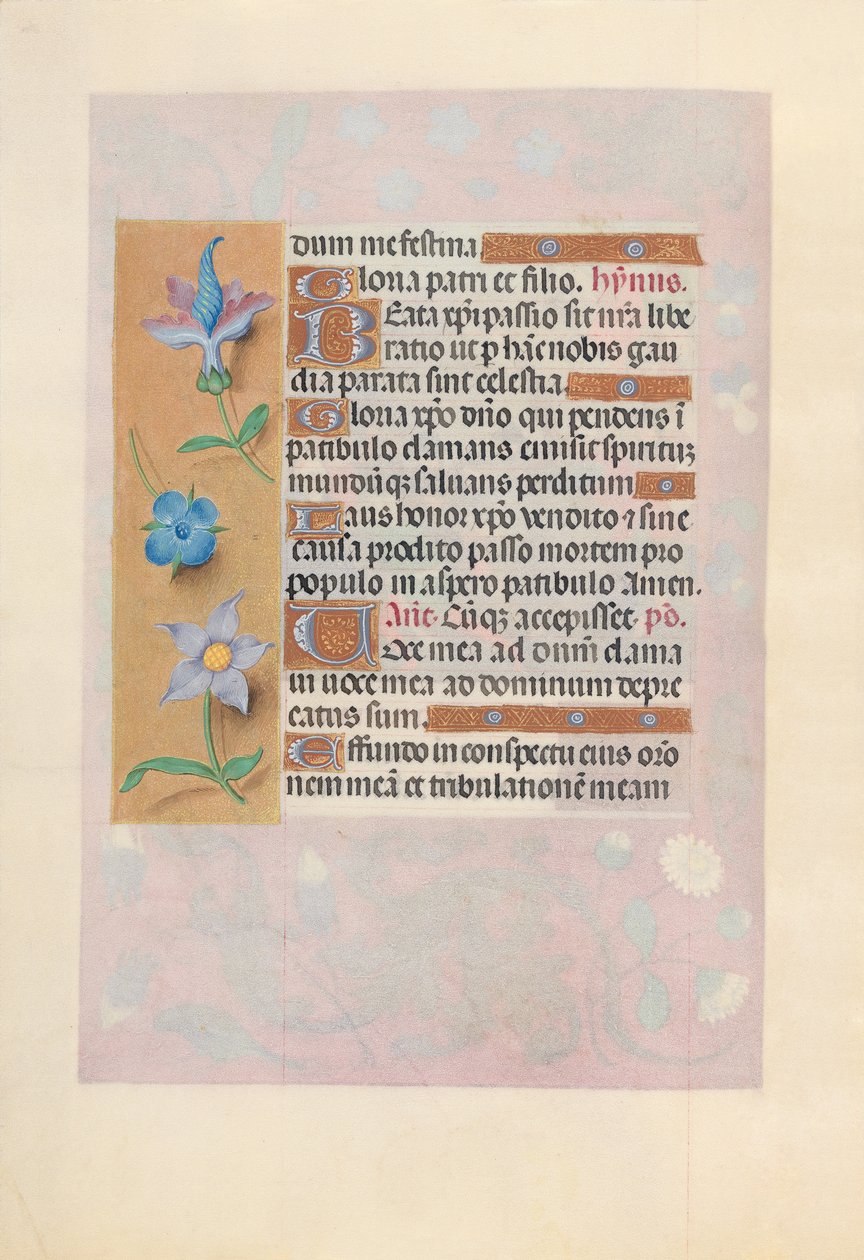 dum me festina
Gloria patri et filio. hȳnus.
Beata xp̄i passio sit nr̄a libe
ratio ut p hāc nobis gau
dia parata sint celestia.
Gloria xp̄o dn̄o qui pendens ī
patibulo clamans emisit spirituꝫ
mundūqꝫ saluans perditum
Laus honor xp̄o vendito ⁊ sine
causa prodito passo mortem pro
populo in aspero patibulo Amen.
Ant̄. Cūqꝫ accepisset. pō.
Uoce mea ad dnm̄ clama
ui uoce mea ad dominum depre
catus sum.
Effundo in conspectu eius or̄o
nem meā et tribulationē meam